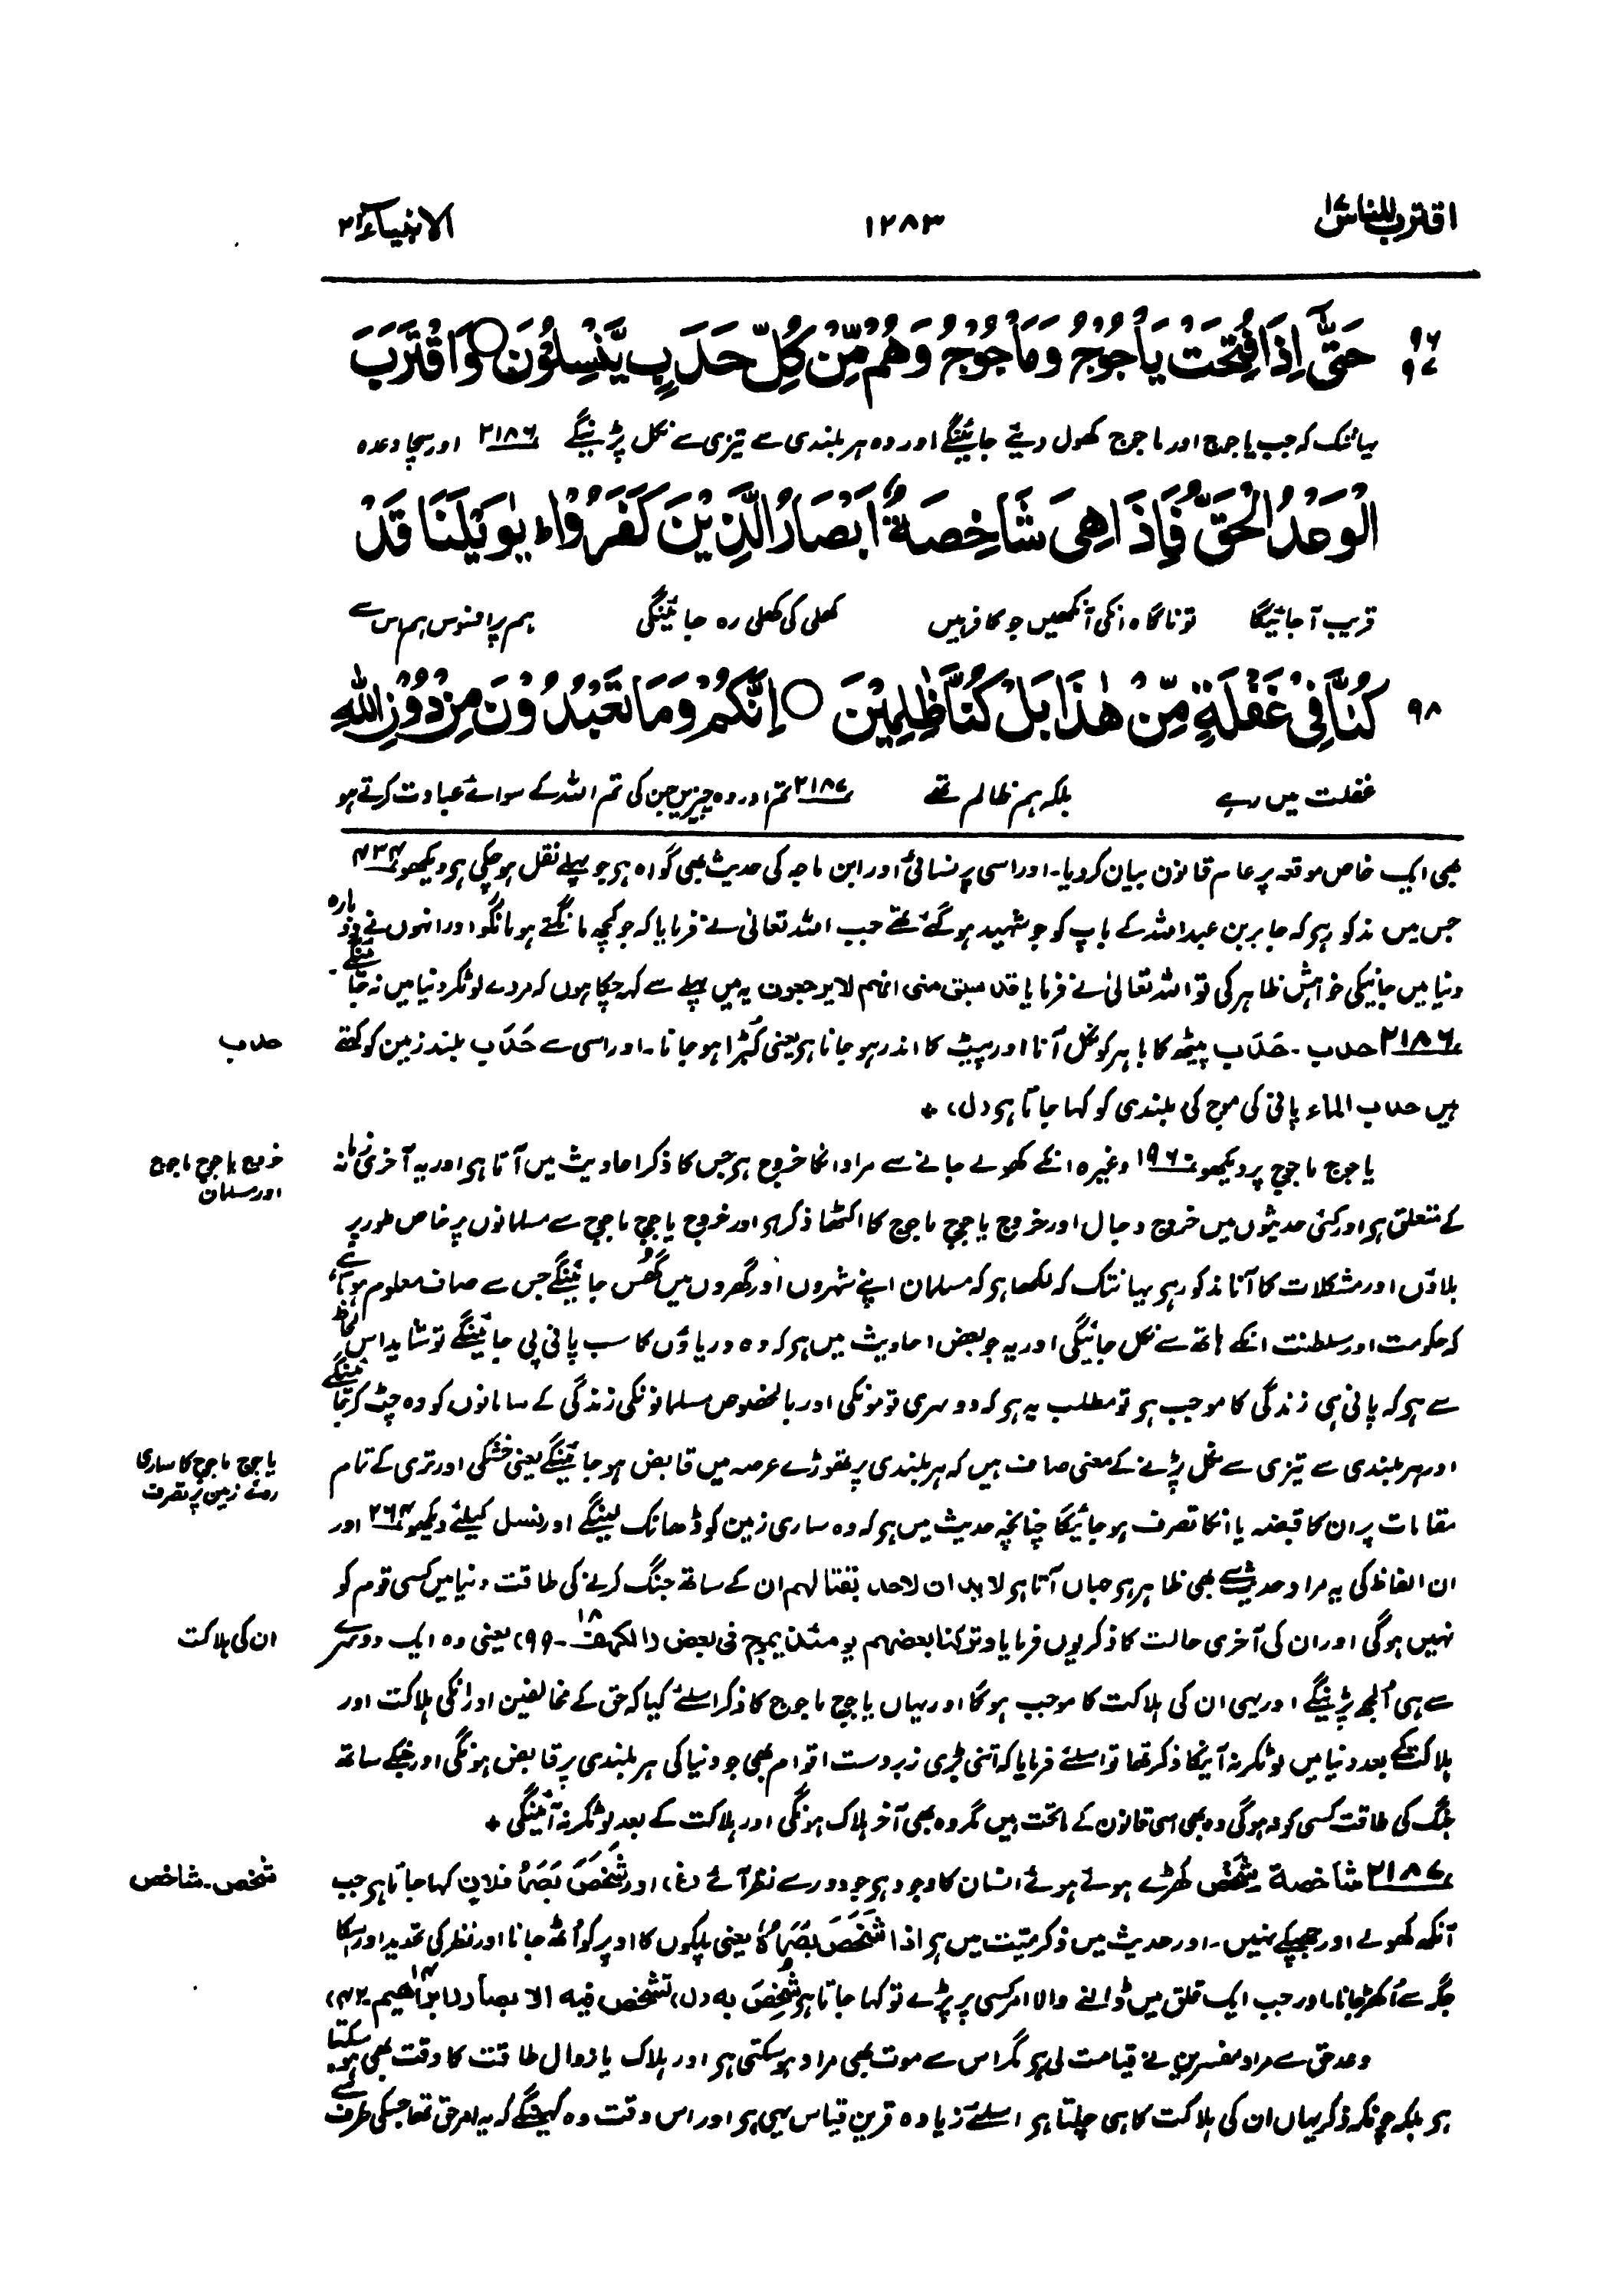 اقترب للناس ۱۷
۱۲۸۳
الانبیاء ۲۱
۹۶ حَتّٰۤى اِذَا فُتِحَتْ يَاْجُوْجُ وَمَاْجُوْجُ وَهُمْ مِّنْ كُلِّ حَدَبٍ يَّنْسِلُوْنَ ○ وَاقْتَرَبَ
۹۷
یہانتک کہ جب یاجوج اور ماجوج کھول دیئے جائینگے اور وہ ہر بلندی سے تیزی سے نکل پڑینگے ۲۱۸۶ اور سچا وعدہ
الْوَعْدُ الْحَقُّ فَاِذَا هِىَ شَاخِصَةٌ اَبْصَارُ الَّذِيْنَ كَفَرُوْا ؕ يٰوَيْلَنَا قَدْ
قریب آجائیگا تو ناگاہ انکی آنکھیں جو کافر ہیں کھلی کی کھلی رہ جائینگی ہم پر افسوس ہم اس سے
۹۸ كُنَّا فِىْ غَفْلَةٍ مِّنْ هٰذَا بَلْ كُنَّا ظٰلِمِيْنَ ○ اِنَّكُمْ وَمَا تَعْبُدُوْنَ مِنْ دُوْنِ اللّٰهِ
غفلت میں رہے بلکہ ہم ظالم تھے ۲۱۸۷ تم اور وہ چیزیں جن کی تم اللہ کے سوائے عبادت کرتے ہو
بھی ایک خاص موقعہ پر عام قانون بیان کر دیا۔ اور اسی پر نسائی اور ابن ماجہ کی حدیث بھی گواہ ہر جو پہلے نقل ہو چکی ہر دیکھو ۴۳۴
جس میں مذکور ہر کہ جابر بن عبداللہ کے باپ کو جو شہید ہو گئے تھے جب اللہ تعالیٰ نے فرمایا کہ جو کچھ مانگتے ہو مانگو اور انہوں نے دوبارہ
دنیا میں جانیکی خواہش ظاہر کی تو اللہ تعالیٰ نے فرمایا قد سبق منی انہم لا یرجعون یہ میں پہلے سے کہہ چکا ہوں کہ مردے لوٹکر دنیا میں نہ جائینگے۔
۲۱۸۶ حدب۔ حَدَب پیٹھ کا باہر کو نکل آنا اور پیٹ کا اندر ہو جانا ہر یعنی کُبڑا ہو جانا۔ اور اسی سے حَدَب بلند زمین کو کہتے
حدب
ہیں حدب الماء پانی کی موج کی بلندی کو کہا جاتا ہر (ل) ٭
یاجوج ماجوج پر دیکھو ۱۹۶۰ وغیرہ انکے کھولے جانے سے مراد انکا خروج ہر جس کا ذکر احادیث میں آتا ہر اور یہ آخری زمانہ
خروج یاجوج ماجوج
اور مسلمان
کے متعلق ہر اور کئی حدیثوں میں خروج دجال اور خروج یاجوج ماجوج کا اکٹھا ذکر ہر اور خروج یاجوج ماجوج سے مسلمانوں پر خاص طور پر
بلاؤں اور مشکلات کا آنا مذکور ہر یہانتک کہ لکھا ہر کہ مسلمان اپنے شہروں اور گھروں میں گھُس جائینگے جس سے صاف معلوم ہوتا ہے
کہ حکومت اور سلطنت انکے ہاتھ سے نکل جائیگی اور یہ جو بعض احادیث میں ہر کہ وہ دریاؤں کا سب پانی پی جائینگے تو شاید اس لحاظ
سے ہر کہ پانی ہی زندگی کا موجب ہر تو مطلب یہ ہر کہ دوسری قومونکی اور بالخصوص مسلمانونکی زندگی کے سامانوں کو وہ چٹ کر جائینگے
اور ہر بلندی سے تیزی سے نکل پڑنے کے معنی صاف ہیں کہ ہر بلندی پر تھوڑے عرصہ میں قابض ہو جائینگے یعنی خشکی اور تری کے تمام
یاجوج ماجوج کا ساری
روئے زمین پر تصرف
مقامات پر ان کا قبضہ یا انکا تصرف ہو جائیگا چنانچہ حدیث میں ہر کہ وہ ساری زمین کو ڈھانک لینگے اور نسل کیلئے دیکھو ۲۶۴ اور
ان الفاظ کی یہ مراد حدیث سے بھی ظاہر ہر جہاں آتا ہر لا یدان لاحد بقتالہم ان کے ساتھ جنگ کرنے کی طاقت دنیا میں کسی قوم کو
نہیں ہوگی اور ان کی آخری حالت کا ذکر یوں فرمایا وترکنا بعضہم یومئذ یموج فی بعض (الکہف ۱۸۔۹۹) یعنی وہ ایک دوسرے
ان کی ہلاکت
سے ہی اُلجھ پڑینگے اور یہی ان کی ہلاکت کا موجب ہوگا اور یہاں یاجوج ماجوج کا ذکر اسلئے کیا کہ حق کے مخالفین اور انکی ہلاکت اور
ہلاکت کے بعد دنیا میں لوٹکر نہ آنیکا ذکر تھا تو اسلئے فرمایا کہ اتنی بڑی زبردست اقوام بھی جو دنیا کی ہر بلندی پر قابض ہونگی اور جنکے ساتھ
جنگ کی طاقت کسی کو نہ ہوگی وہ بھی اسی قانون کے ماتحت ہیں مگر وہ بھی آخر ہلاک ہونگی اور ہلاکت کے بعد لوٹکر نہ آئینگی ٭
۲۱۸۷ شاخصة شخص کھڑے ہوتے ہوئے انسان کا وجود ہر جو دور سے نظر آئے (غ) اور شَخَصَ بَصَرُ فلان کہا جاتا ہر جب
شخص۔ شاخص
آنکھ کھولے اور جھپکے نہیں۔ اور حدیث میں ذکر میّت میں ہر اذا شَخَصَ بَصَرُهٗ یعنی پلکوں کا اوپر کو اُٹھ جانا اور نظر کی تحدید اور اسکا
جگہ سے اُکھڑ جانا۔ اور جب ایک قلق میں ڈالنے والا امر کسی پر پڑے تو کہا جاتا ہر شُخِصَ به (ل) تشخص فیه الابصار (ابراهیم ۱۴۔۴۲)
وعد حق سے مراد مفسرین نے قیامت لی ہر مگر اس سے موت بھی مراد ہو سکتی ہر اور ہلاک یا زوال طاقت کا وقت بھی ہو سکتا
ہر بلکہ چونکہ ذکر یہاں ان کی ہلاکت کا ہی چلتا ہر اسلئے زیادہ قرین قیاس یہی ہر اور اس وقت وہ کہینگے کہ یہ امر حق تھا جسکی طرف سے